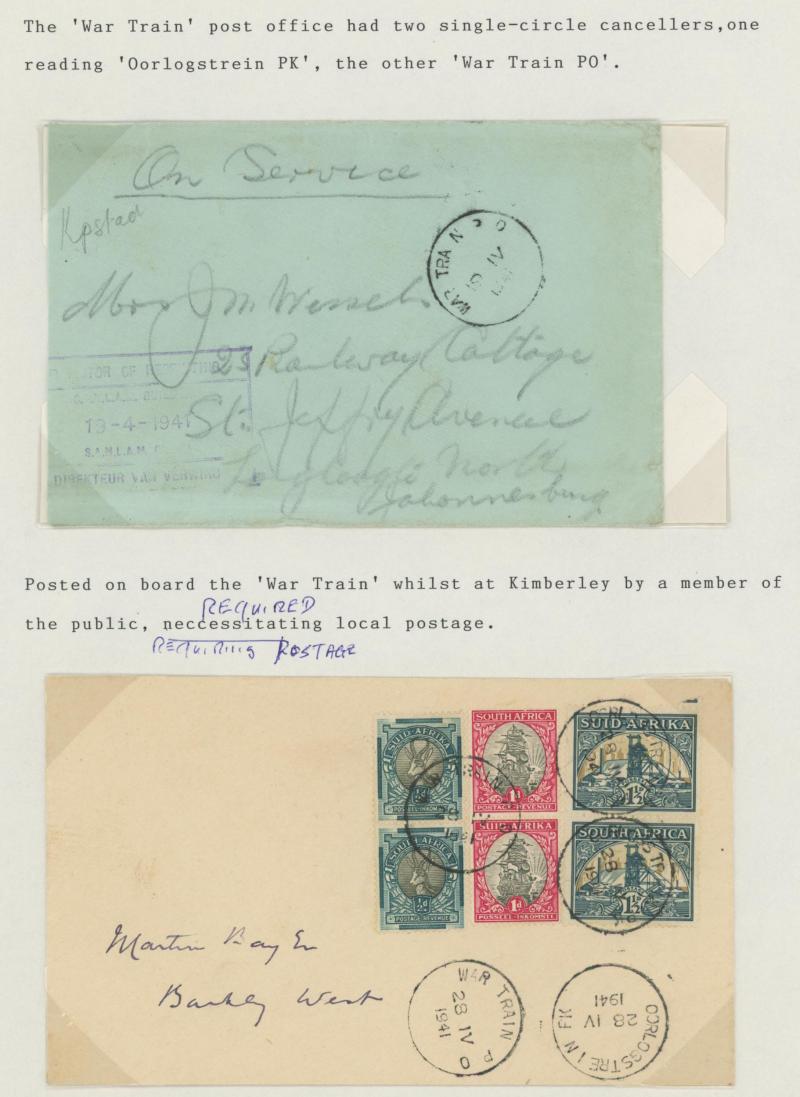 The 'War Train' post office had two single-circle cancellers,one
reading 'Oorlogstrein PK', the other 'War Train PO'.
On Service
Kpstad
WAR TRAIN P O
IV
1941
Mrs J M Wessels
23 Railway Cottage
St. Jeffry Avenue
North
Johannesburg
OF RECRUITING
19-4-1941
S.A.N.L.A.M.
DIREKTEUR VAN WERWING
Posted on board the 'War Train' whilst at Kimberley by a member of
REQUIRED
the public, neccessitating local postage.
REQUIRING POSTAGE
SUID-AFRIKA
½d
POSSEEL-INKOMSTE
SOUTH AFRICA
1d
POSTAGE REVENUE
SUID-AFRIKA
1½
SOUTH AFRICA
½d
POSTAGE-REVENUE
SUID-AFRIKA
1d
POSSEEL-INKOMSTE
SOUTH AFRICA
1½
Martin Bay
Barkly West
WAR TRAIN P O
28 IV
1941
OORLOGSTREIN PK
28 IV
1941